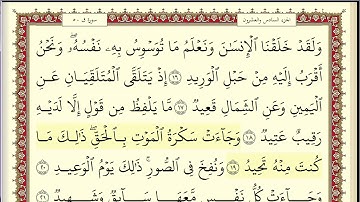 الجزء السادس والعشرون سورة ق ٥٠
وَلَقَدْ خَلَقْنَا ٱلْإِنسَٰنَ وَنَعْلَمُ مَا تُوَسْوِسُ بِهِۦ نَفْسُهُۥ ۖ وَنَحْنُ
أَقْرَبُ إِلَيْهِ مِنْ حَبْلِ ٱلْوَرِيدِ ١٦ إِذْ يَتَلَقَّى ٱلْمُتَلَقِّيَانِ عَنِ
ٱلْيَمِينِ وَعَنِ ٱلشِّمَالِ قَعِيدٌ ١٧ مَّا يَلْفِظُ مِن قَوْلٍ إِلَّا لَدَيْهِ
رَقِيبٌ عَتِيدٌ ١٨ وَجَآءَتْ سَكْرَةُ ٱلْمَوْتِ بِٱلْحَقِّ ۖ ذَٰلِكَ مَا
كُنتَ مِنْهُ تَحِيدُ ١٩ وَنُفِخَ فِى ٱلصُّورِ ۚ ذَٰلِكَ يَوْمُ ٱلْوَعِيدِ ٢٠
وَجَآءَتْ كُلُّ نَفْسٍ مَّعَهَا سَآئِقٌ وَشَهِيدٌ ٢١